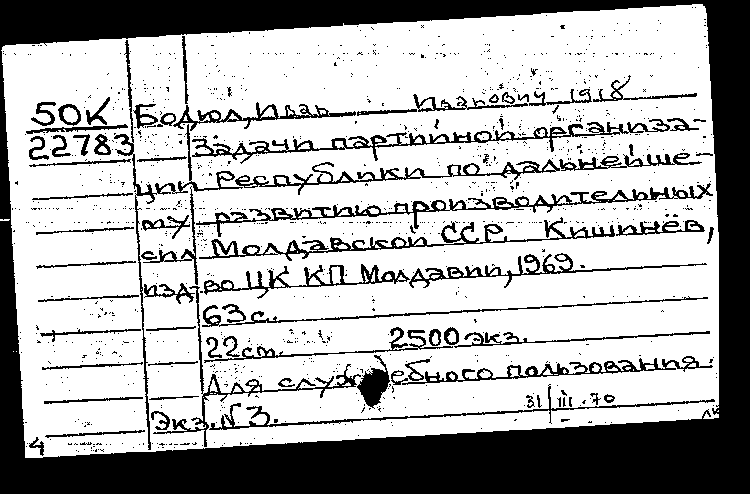 50К Бодюл, Иван Иванович, 1918
22783 Задачи партийной организа-
ции Республики по дальнейше-
му развитию производительных
сил Молдавской ССР. Кишинёв,
изд-во ЦК КП Молдавии, 1969.
63 с.
22 см. 2500 экз.
Для служебного пользования.
Экз. N 3. 31/III.70
4